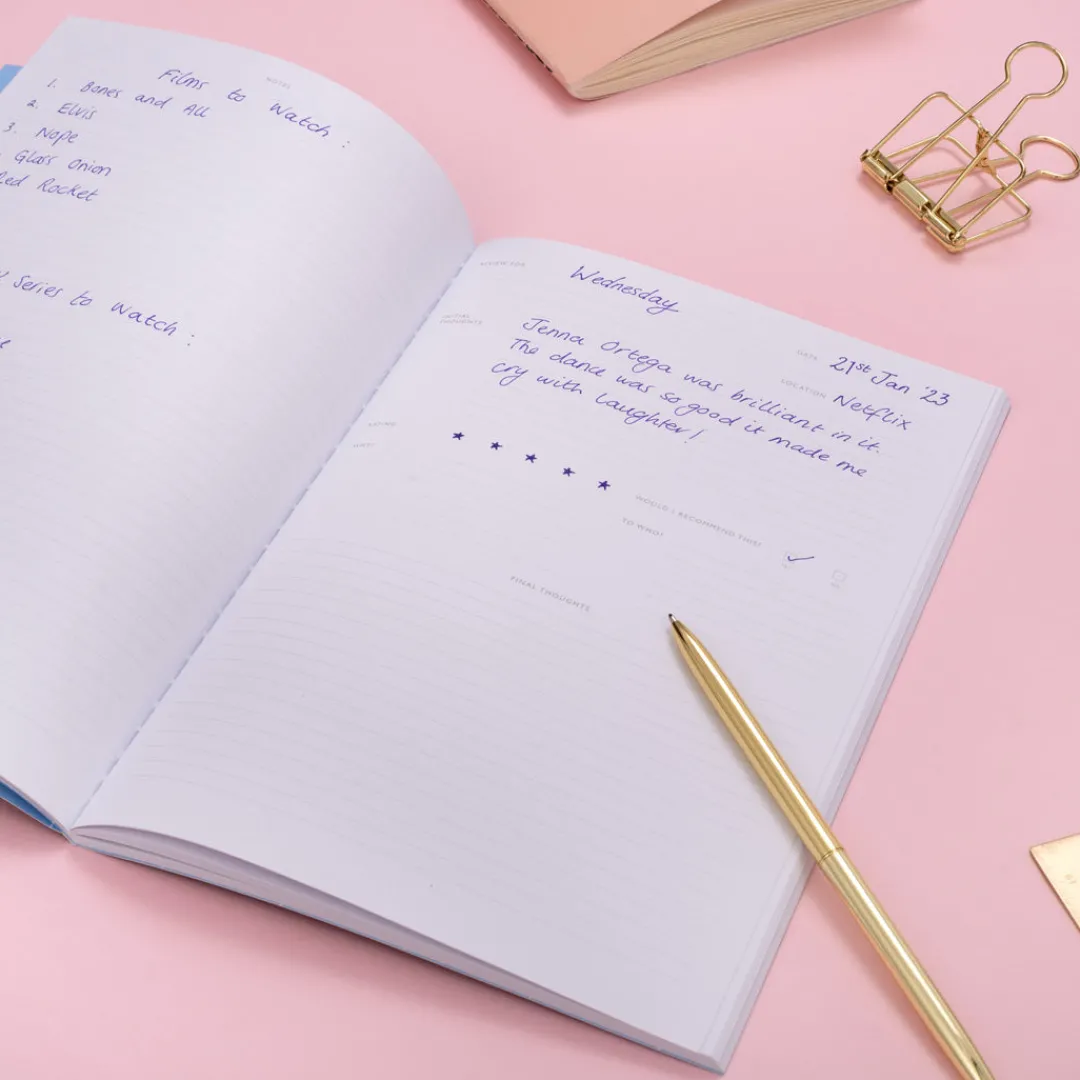 NOTES
Films to Watch :
1. Bones and All
2. Elvis
3. Nope
Glass Onion
Red Rocket
Series to Watch :
Wednesday
DATE 21st Jan '23
LOCATION Netflix
INITIAL
THOUGHTS
Jenna Ortega was brilliant in it.
The dance was so good it made me
cry with laughter!
RATING
WHY?
★ ★ ★ ★ ★
WOULD I RECOMMEND THIS?
TO WHO?
FINAL THOUGHTS